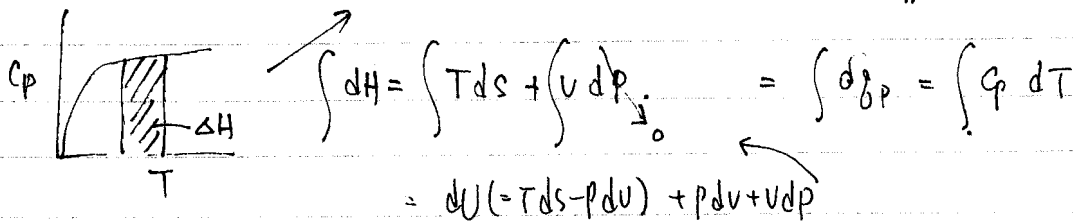 Cp
ΔH
T
∫dH = ∫Tds + ∫vdp → 0 = ∫dqp = ∫Cp dT
= dU(=Tds-pdv) + pdv+vdp